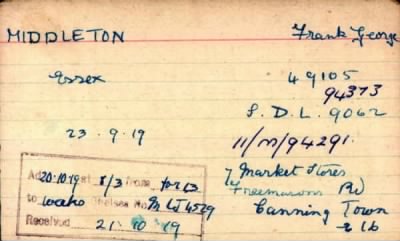 MIDDLETON Frank George
Essex 49105
94373
S.D.L. 9062
23.9.19 11/M/94291.
7 Market Stores
Freemasons Rd
Canning Town
E 16
Ad 20.10.19 at 8/3 from for 63
to Chelsea No. M LJ 4529
Received 21 10 19